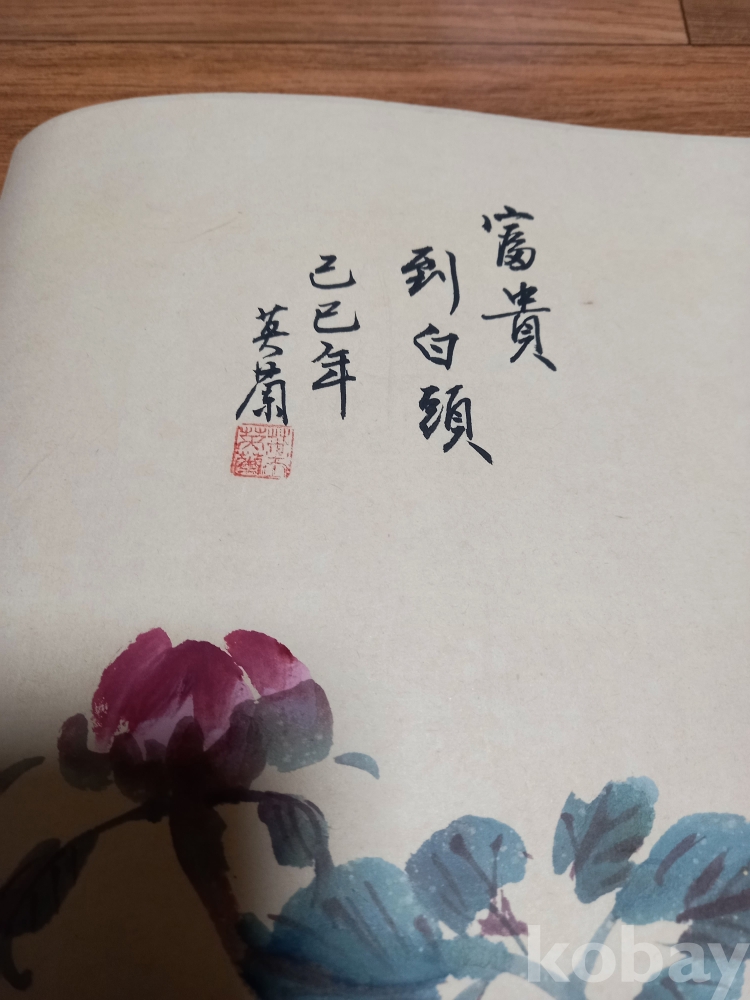 富貴
到白頭
己巳年
英蘭
kobay